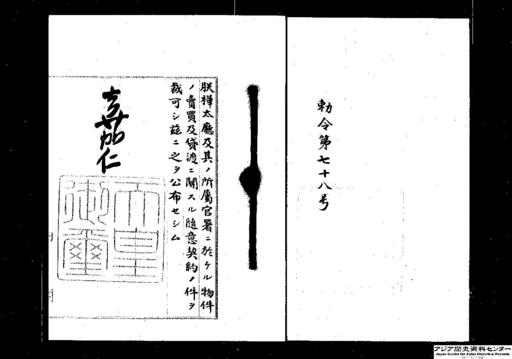 勅令第七十八号
朕樺太廳及其ノ所屬官署ニ於ケル物件
ノ賣買及貸渡ニ關スル隨意契約ノ件ヲ
裁可シ茲ニ之ヲ公布セシム
嘉仁
天皇
御璽
アジア歴史資料センター
Japan Center for Asian Historical Records